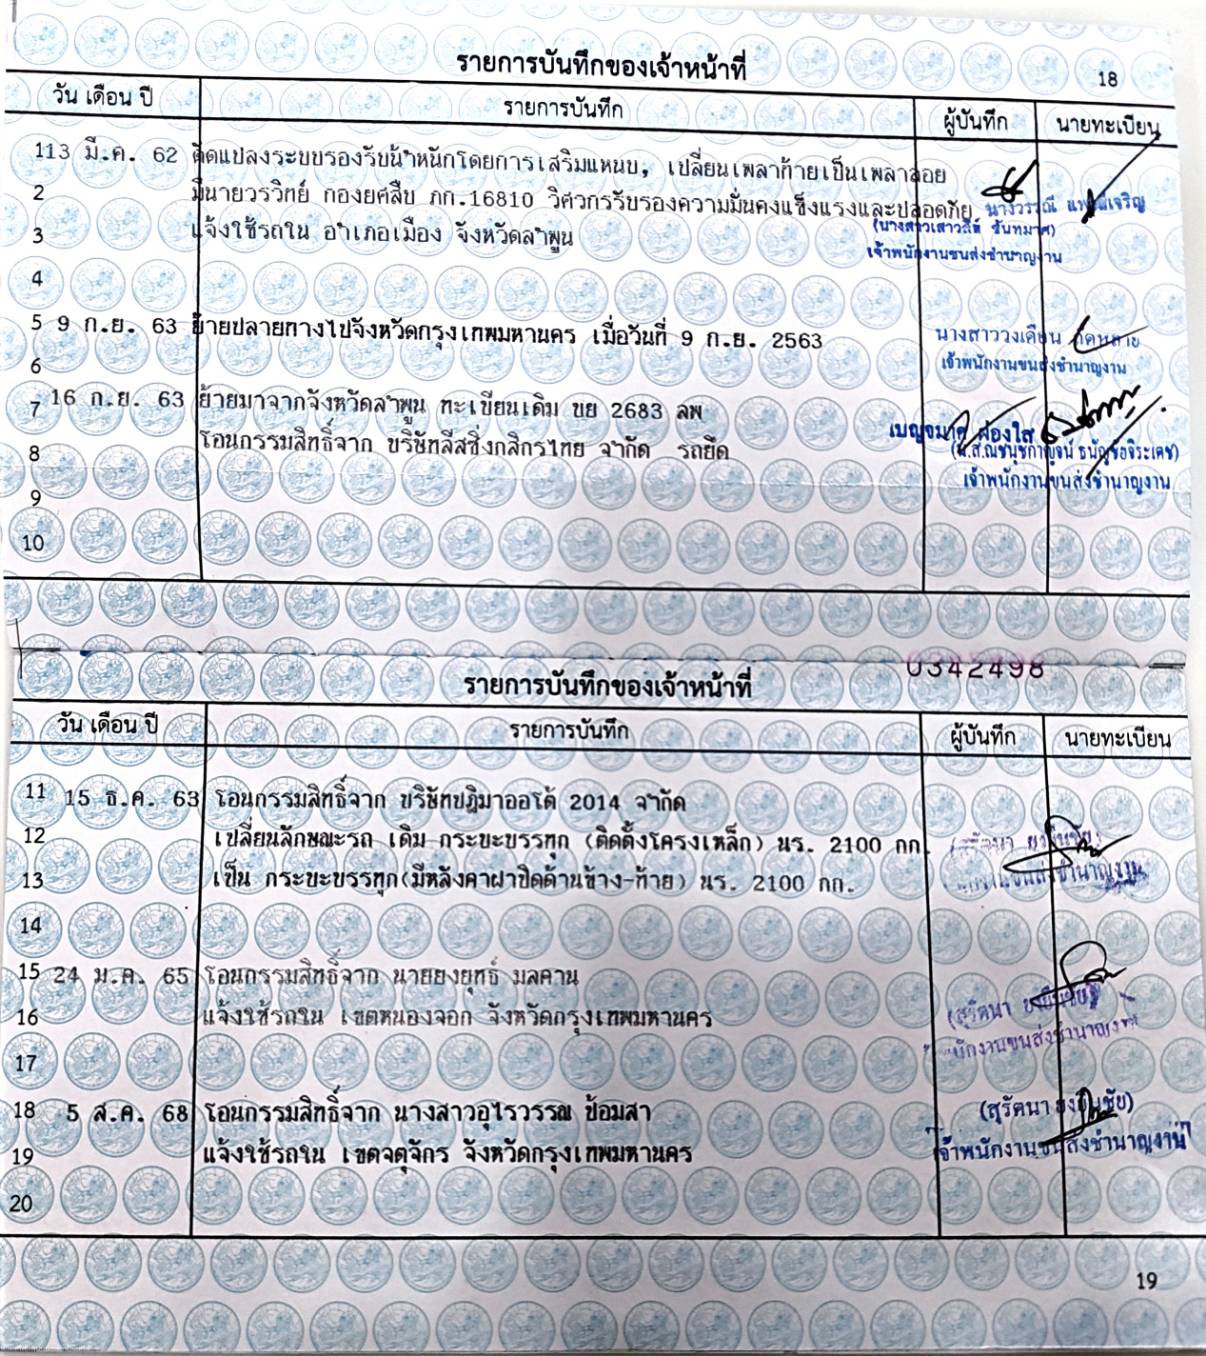 รายการบันทึกของเจ้าหน้าที่
18
วัน เดือน ปี รายการบันทึก ผู้บันทึก นายทะเบียน
1 13 มี.ค. 62 ดัดแปลงระบบรองรับน้ำหนักโดยการเสริมแหนบ, เปลี่ยนเพลาท้ายเป็นเพลาลอย
2 มีนายวรวิทย์ กองยศสืบ ภก.16810 วิศวกรรับรองความมั่นคงแข็งแรงและปลอดภัย นางวรรณี
3 แจ้งใช้รถใน อำเภอเมือง จังหวัดลำพูน
เจ้าพนักงานขนส่งชำนาญงาน
4
5 9 ก.ย. 63 ย้ายปลายทางไปจังหวัดกรุงเทพมหานคร เมื่อวันที่ 9 ก.ย. 2563 นางสาววงเดือน
เจ้าพนักงานขนส่งชำนาญงาน
6
7 16 ก.ย. 63 ย้ายมาจากจังหวัดลำพูน ทะเบียนเดิม ขย 2683 ลพ
เบญจมาศ ผ่องใส
8 โอนกรรมสิทธิ์จาก บริษัทลีสซิ่งกสิกรไทย จำกัด รถยึด
เจ้าพนักงานขนส่งชำนาญงาน
9
10
0342498
รายการบันทึกของเจ้าหน้าที่
วัน เดือน ปี รายการบันทึก ผู้บันทึก นายทะเบียน
11 15 ธ.ค. 63 โอนกรรมสิทธิ์จาก บริษัทปฏิมาออโต้ 2014 จำกัด
12 เปลี่ยนลักษณะรถ เดิม กระบะบรรทุก (ติดตั้งโครงเหล็ก) นร. 2100 กก.
13 เป็น กระบะบรรทุก(มีหลังคาฝาปิดด้านข้าง-ท้าย) นร. 2100 กก.
14
15 24 ม.ค. 65 โอนกรรมสิทธิ์จาก นายยงยุทธ์ มลคาน
16 แจ้งใช้รถใน เขตหนองจอก จังหวัดกรุงเทพมหานคร
(สุรัตนา
17
18 5 ส.ค. 68 โอนกรรมสิทธิ์จาก นางสาวอุไรวรรณ ป้อมสา (สุรัตนา
19 แจ้งใช้รถใน เขตจตุจักร จังหวัดกรุงเทพมหานคร เจ้าพนักงานขนส่งชำนาญงาน
20
19